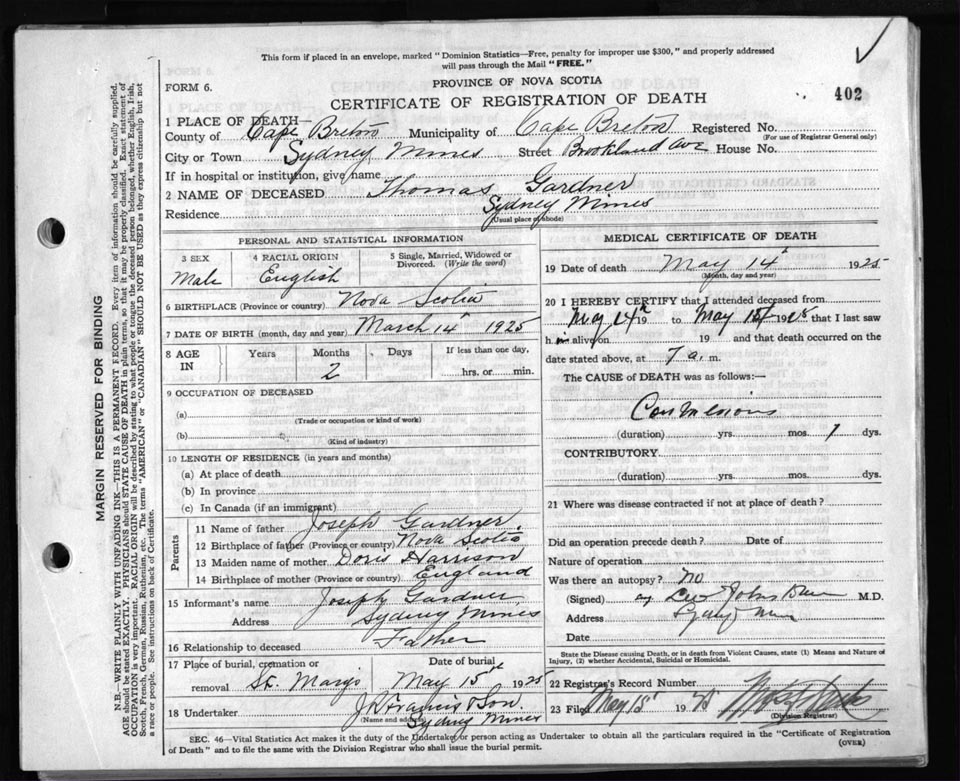 This form if placed in an envelope, marked "Dominion Statistics—Free, penalty for improper use $300," and properly addressed
will pass through the Mail "FREE."
FORM 6.
PROVINCE OF NOVA SCOTIA
CERTIFICATE OF REGISTRATION OF DEATH
402
1 PLACE OF DEATH—
County of Cape Breton Municipality of Cape Breton Registered No.
(For use of Registrar General only)
City or Town Sydney Mines Street Brookland Ave House No.
If in hospital or institution, give name
2 NAME OF DECEASED Thomas Gardner
Residence Sydney Mines
(Usual place of abode)
PERSONAL AND STATISTICAL INFORMATION
3 SEX
Male
4 RACIAL ORIGIN
English
5 Single, Married, Widowed or Divorced. (Write the word)
6 BIRTHPLACE (Province or country) Nova Scotia
7 DATE OF BIRTH (month, day and year) March 14 1925
8 AGE IN
Years Months Days If less than one day,
2 hrs. or min.
9 OCCUPATION OF DECEASED
(a)
(Trade or occupation or kind of work)
(b)
(Kind of industry)
10 LENGTH OF RESIDENCE (in years and months)
(a) At place of death
(b) In province
(c) In Canada (if an immigrant)
Parents
11 Name of father Joseph Gardner
12 Birthplace of father (Province or country) Nova Scotia
13 Maiden name of mother Doris Harrison
14 Birthplace of mother (Province or country) England
15 Informant's name Joseph Gardner
Address Sydney Mines
16 Relationship to deceased Father
17 Place of burial, cremation or removal St. Marys
Date of burial May 15 1925
18 Undertaker J R Francis & Son.
(Name and address) Sydney Mines
MEDICAL CERTIFICATE OF DEATH
19 Date of death May 14 1925
(Month, day and year)
20 I HEREBY CERTIFY that I attended deceased from
May 14th 19 to May 1925 that I last saw
h im alive on 19 and that death occurred on the
date stated above, at 7 a. m.
The CAUSE of DEATH was as follows:—
Convulsions
(duration) yrs. mos. 1 dys.
CONTRIBUTORY
(duration) yrs. mos. dys.
21 Where was disease contracted if not at place of death?
Did an operation precede death? Date of
Nature of operation
Was there an autopsy? No
(Signed) M.D.
Address
Date
State the Disease causing Death, or in death from Violent Causes, state (1) Means and Nature of
Injury, (2) whether Accidental, Suicidal or Homicidal.
22 Registrar's Record Number
23 Filed May 15 19 25
(Division Registrar)
SEC. 46—Vital Statistics Act makes it the duty of the Undertaker or person acting as Undertaker to obtain all the particulars required in the "Certificate of Registration
of Death" and to file the same with the Division Registrar who shall issue the burial permit.
(OVER)
MARGIN RESERVED FOR BINDING
N.B.—WRITE PLAINLY, WITH UNFADING INK—THIS IS A PERMANENT RECORD. Every item of information should be carefully supplied.
AGE should be stated EXACTLY. PHYSICIANS should STATE CAUSE OF DEATH in plain terms, so that it may be properly classified. Exact statement of
OCCUPATION is very important. RACIAL ORIGIN will be described by stating to what people or tongue the deceased person belonged, whether English, Irish,
Scotch, French, German, Russian, Ruthenian, etc. The terms "AMERICAN" or "CANADIAN" SHOULD NOT BE USED as they express citizenship but not
a race or people. See instructions on back of Certificate.